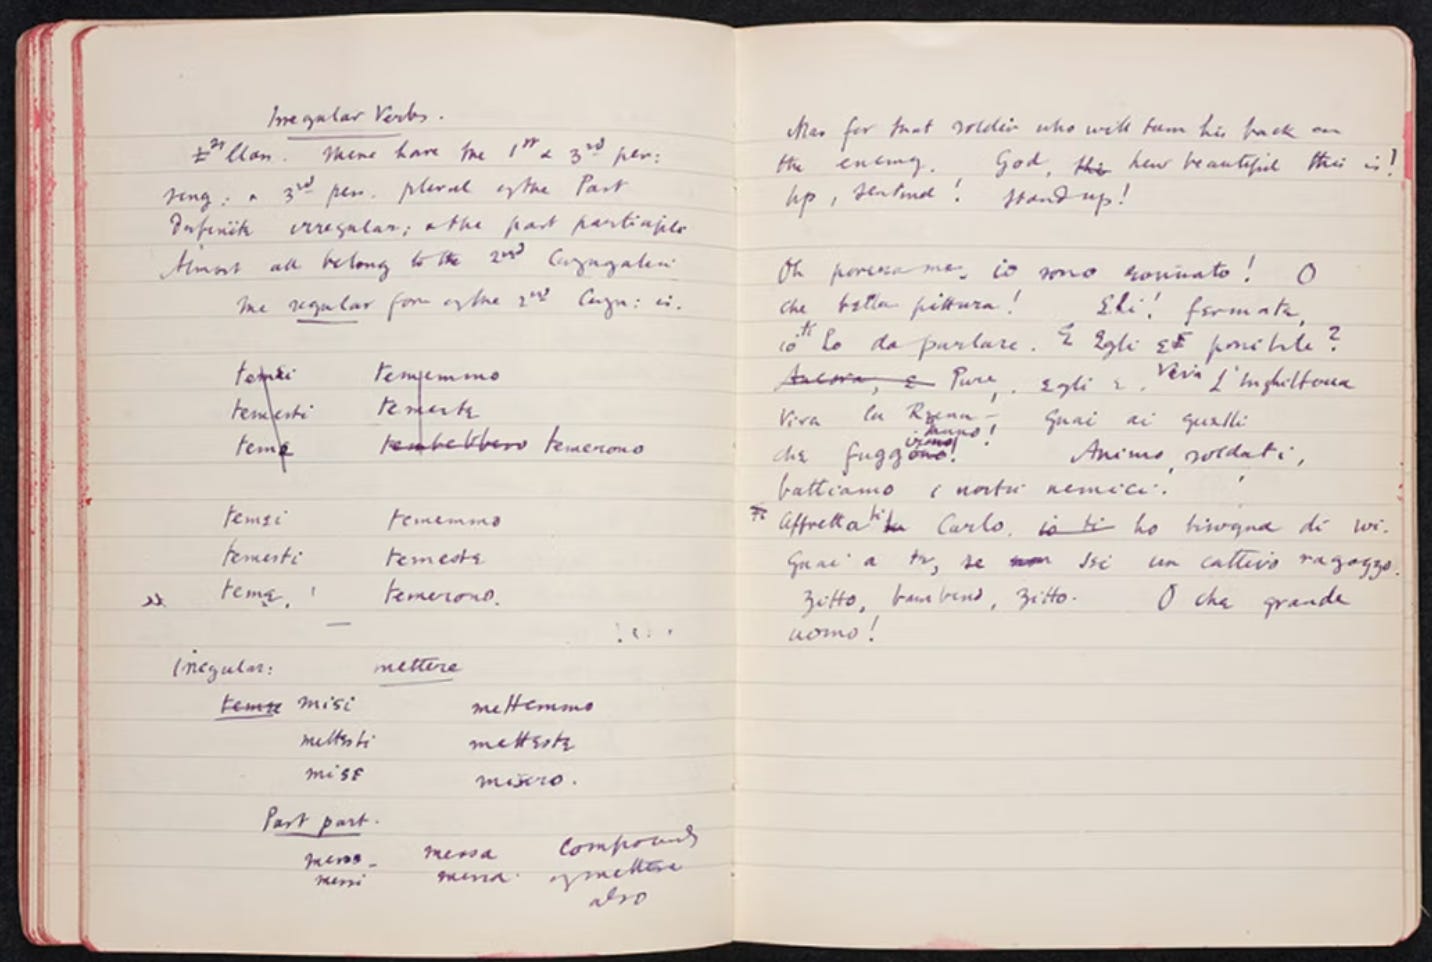 Irregular Verbs.
1st Class. These have the 1st & 3rd per:
sing: & 3rd pers. plural of the Past
Definite irregular; & the past participle
Almost all belong to the 2nd Conjugation
The regular form of the 2nd Conju: is.
temei temjemmo
temesti temeste
teme temebbero temerono
temei tememmo
temesti temeste
teme, temerono.
Irregular: mettere
teme misi mettemmo
mettesti metteste
mise misero.
Past part.
messo messa compounds
messi messa of mettere
also
Alas for that soldier who will turn his back on
the enemy. God, this how beautiful this is!
Up, sentinel! Stand up!
Oh povera me, io sono rovinato! O
che bella pittura! Ehi! fermata,
io ti ho da parlare. E Egli è possibile?
Ancora, e Pure, Egli e. Viva L'Inghilterra
Viva la Regina - Guai ai quelli
che fuggono! irono! anno! Animo, soldati,
battiamo i nostri nemici!
Ti affretta ti tu Carlo. io ti ho bisogna di voi.
Guai a te, se non sei un cattivo ragazzo.
Zitto, bambino, zitto. O che grande
uomo!